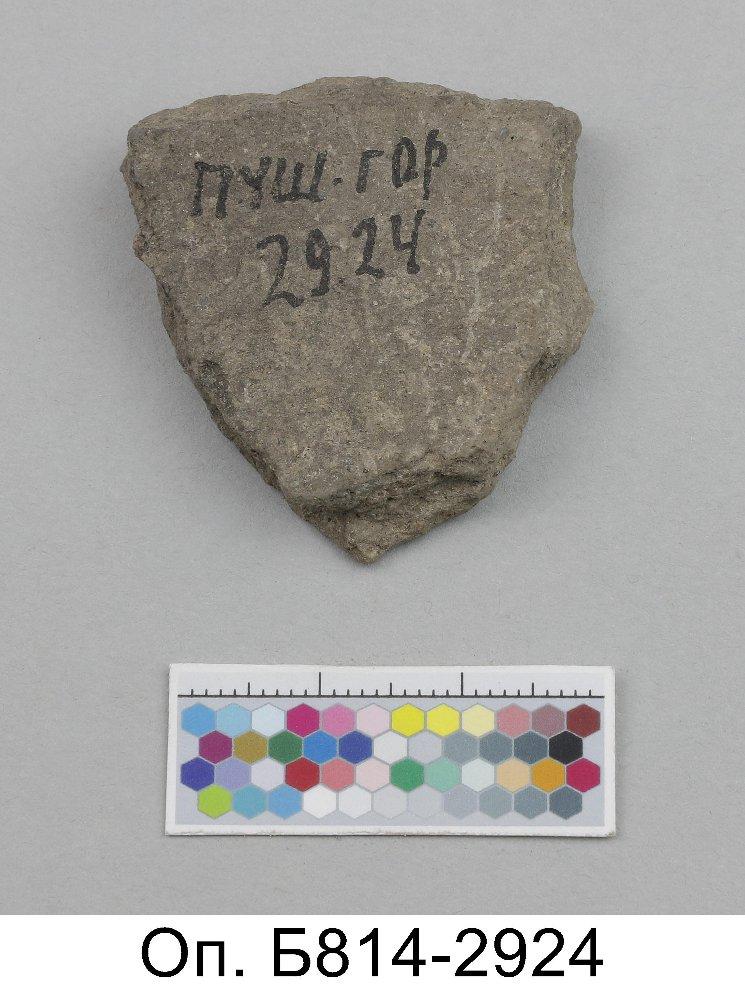 ПУШ. ГОР
2924
Оп. Б814-2924